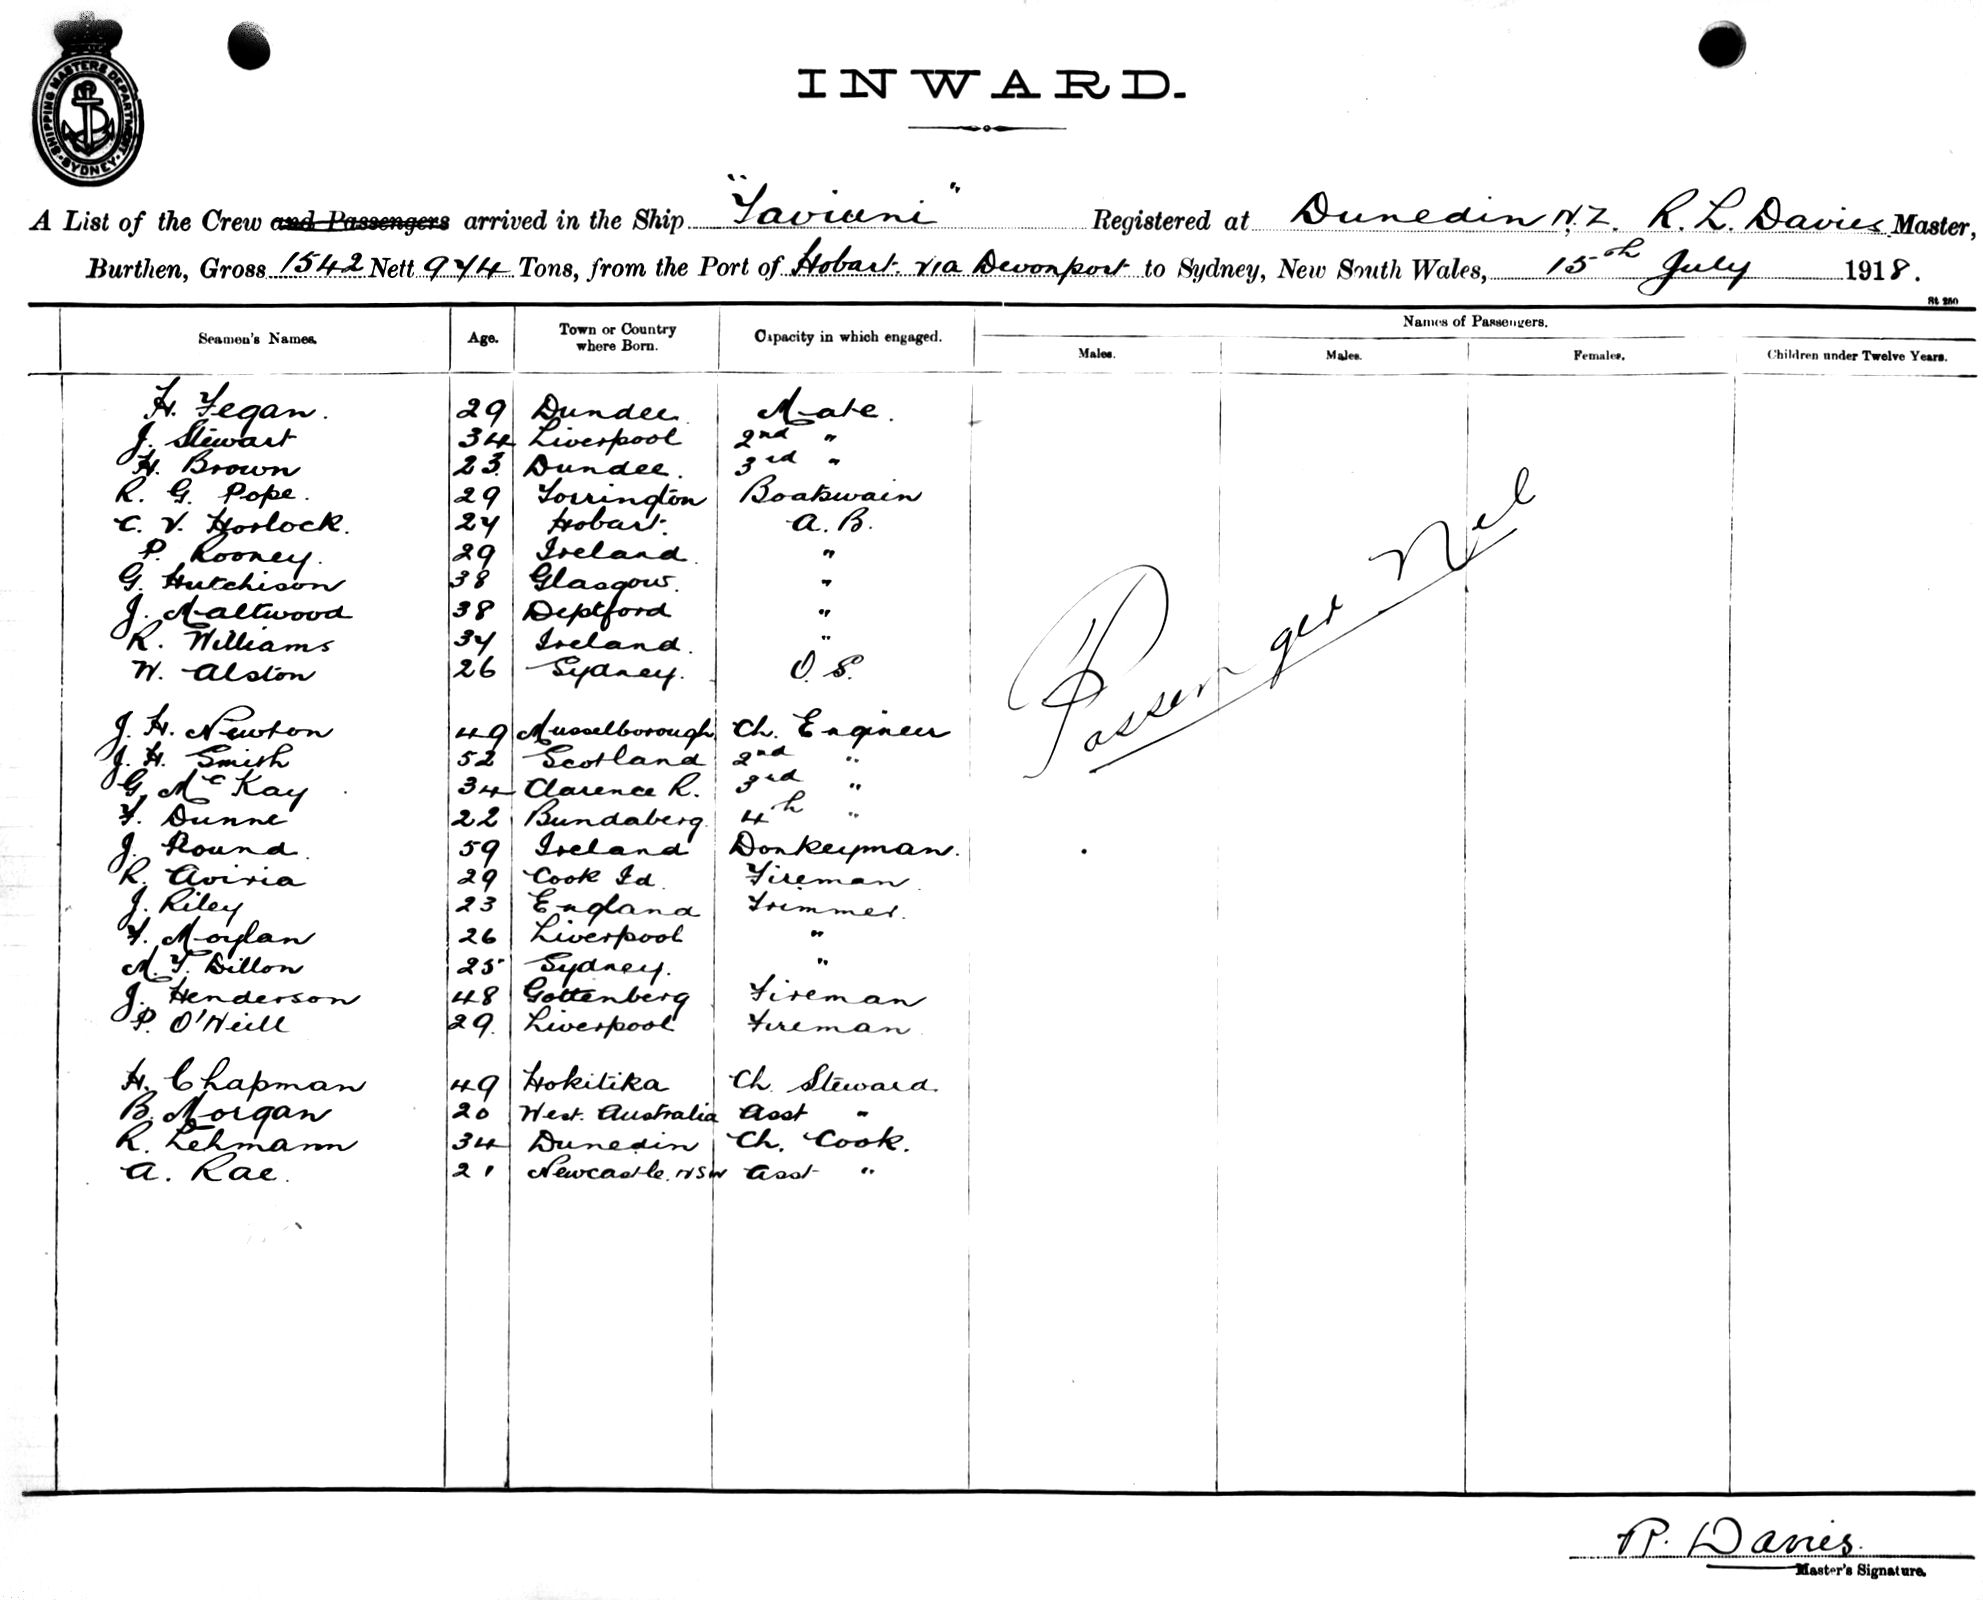 SHIPPING MASTERS DEPARTMENT SYDNEY
INWARD.
A List of the Crew and Passengers arrived in the Ship "Taviuni" Registered at Dunedin N.Z. R. L. Davies Master,
Burthen, Gross 1542 Nett 974 Tons, from the Port of Hobart via Devonport to Sydney, New South Wales, 15th July 1918.
St 250
Seamen's Names. Age. Town or Country where Born. Capacity in which engaged. Names of Passengers.
Males. Males. Females. Children under Twelve Years.
H. Fegan. 29 Dundee Mate.
J. Stewart 34 Liverpool 2nd "
H. Brown 23 Dundee. 3rd "
R. G. Pope. 29 Torrington Boatswain
C. V. Horlock. 27 Hobart. A.B.
P. Rooney. 29 Ireland "
G. Hutchison 38 Glasgow. "
J. Maltwood 38 Deptford "
R. Williams 37 Ireland. "
W. Alston 26 Sydney. O.S.
J. H. Newton 49 Musselborough Ch. Engineer
J. H. Smith 52 Scotland 2nd "
G. McKay 34 Clarence R. 3rd "
F. Dunne 22 Bundaberg. 4th "
J. Round. 59 Ireland Donkeyman.
R. Aviria 29 Cook Id. Fireman.
J. Riley 23 England Trimmer.
F. Moylan 26 Liverpool "
M. F. Dillon 25 Sydney. "
J. Henderson 48 Gottenberg Fireman
P. O'Neill 29. Liverpool Fireman
H. Chapman 49 Hokitika Ch. Steward.
B. Morgan 20 West. Australia Asst "
R. Lehmann 34 Dunedin Ch. Cook.
A. Rae. 21 Newcastle. NSW Asst "
Passenger Nil
R. Davies.
Master's Signature.